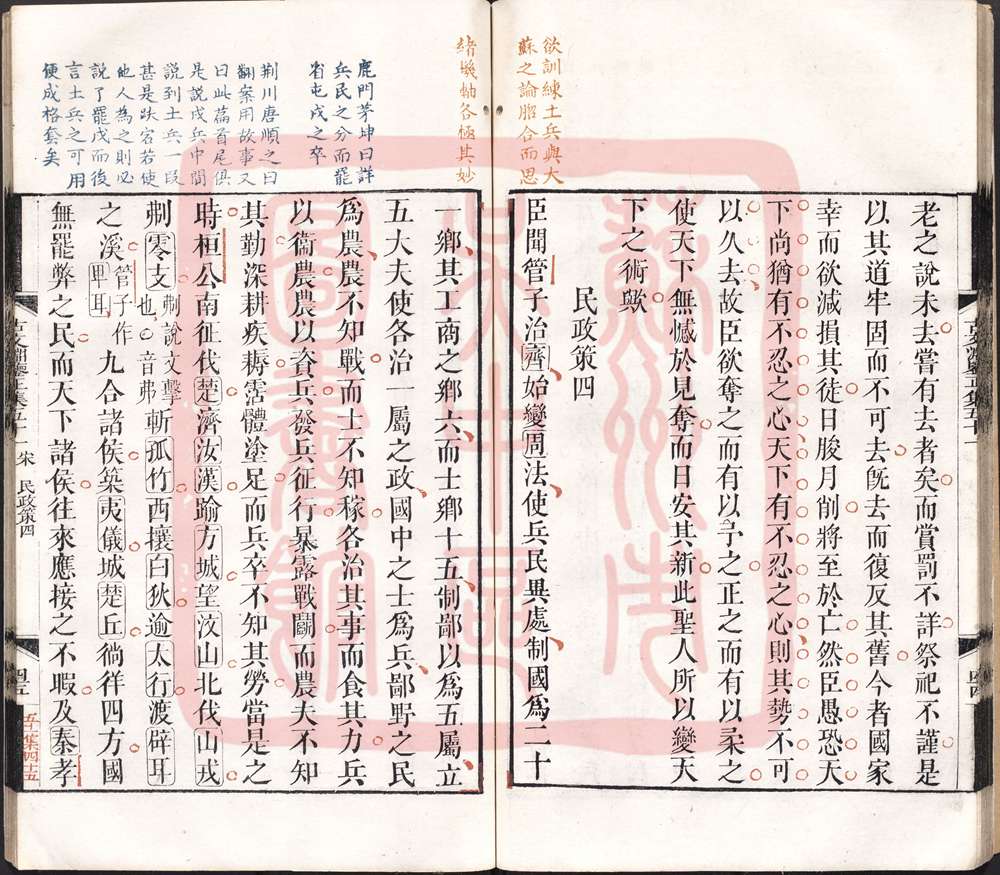 欲訓練土兵與大
蘇之論脗合而思
緒機軸各極其妙
老之說未去嘗有去者矣而賞罰不詳祭祀不謹是
以其道牢固而不可去旣去而復反其舊今者國家
幸而欲減損其徒日朘月削將至於亡然臣愚恐天
下尚猶有不忍之心天下有不忍之心則其勢不可
以久去故臣欲奪之而有以予之正之而有以柔之
使天下無憾於見奪而日安其新此聖人所以變天
下之術歟
民政策四
臣聞管子治齊始變周法使兵民異處制國爲二十
鹿門茅坤曰詳
兵民之分而罷
省屯戍之卒
荆川唐順之曰
翻案用故事又
曰此篇首尾俱
是說戍兵中間
說到土兵一段
甚是趺宕若使
他人為之則必
說了罷戍而後
言土兵之可用
便成格套矣
一鄉其工商之鄉六而士鄉十五制鄙以爲五屬立
五大夫使各治一屬之政國中之士爲兵鄙野之民
爲農農不知戰而士不知稼各治其事而食其力兵
以衞農農以資兵發兵征行暴露戰鬭而農夫不知
其勤深耕疾耨霑體塗足而兵卒不知其勞當是之
時桓公南征伐楚濟汝漢踰方城望汶山北伐山戎
刜零支刜說文擊也○音弗斬孤竹西攘白狄逾太行渡辟耳
之溪管子作卑耳九合諸侯築夷儀城楚丘徜徉四方國
無罷弊之民而天下諸侯往來應接之不暇及秦孝
宋 民政策四